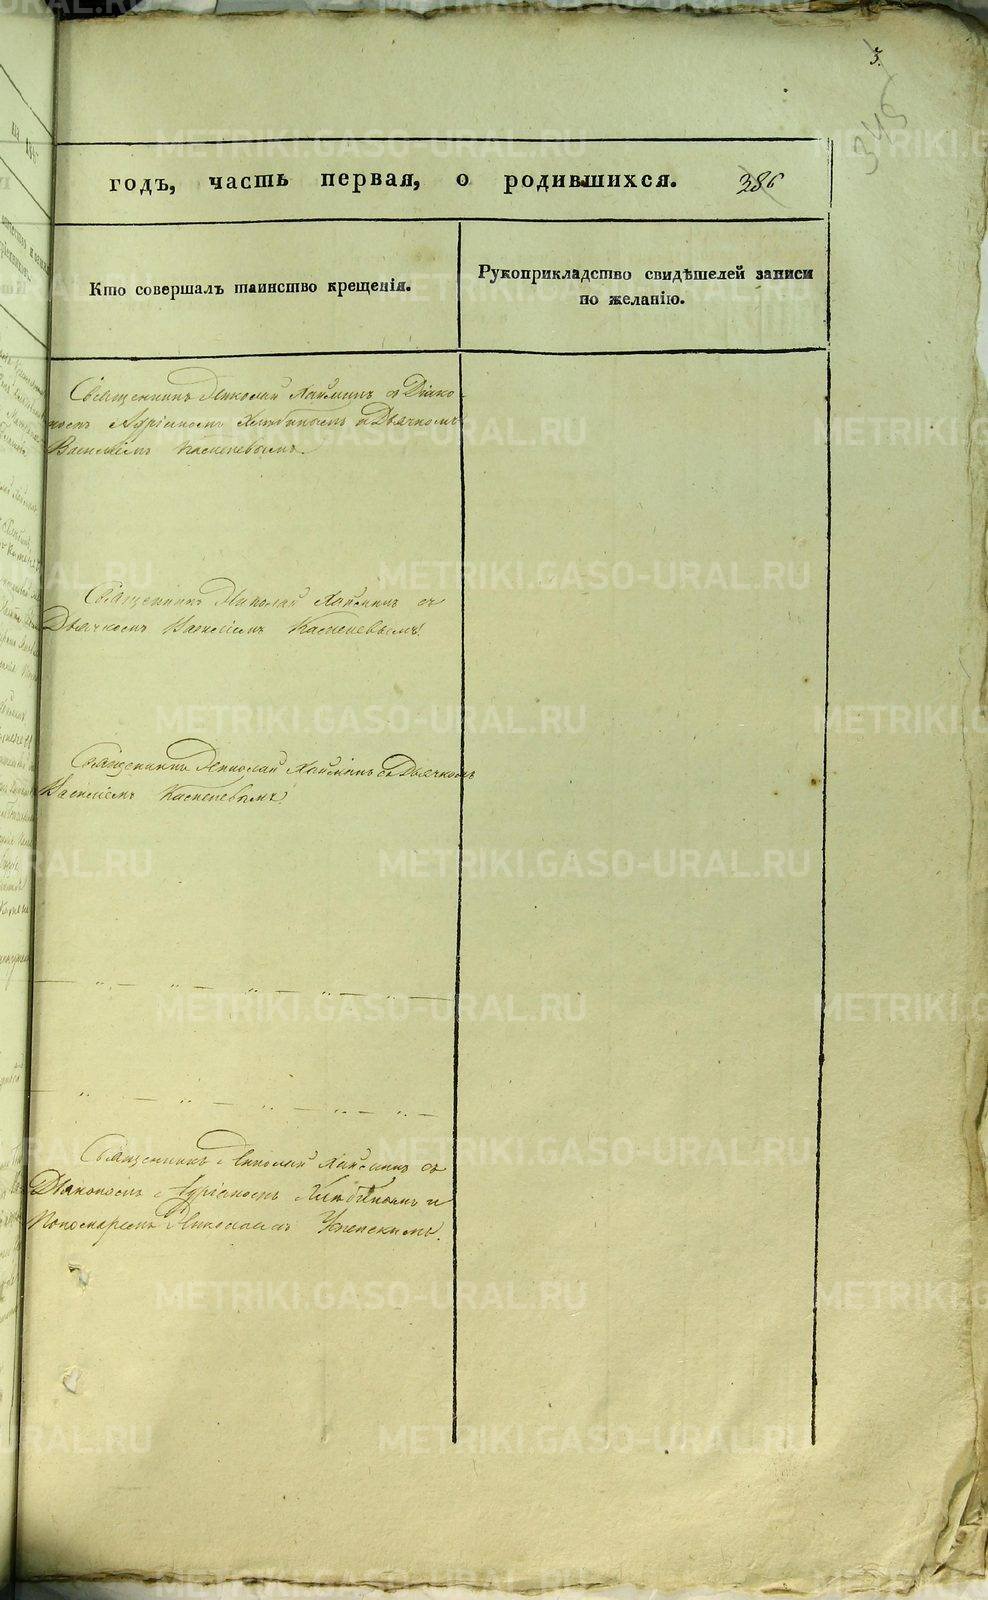 3.
345
годъ, часть первая, о родившихся. 386
Кто совершалъ таинство крещенія.
Рукоприкладство свидѣтелей записи
по желанію.
Священникъ Николай Хаймин съ Діако-
номъ Адріаномъ Хлѣбинымъ и Дьячкомъ
Василіемъ
Священникъ Николай Хаймин съ
Дьячкомъ Василіемъ
Священникъ Николай Хаймин съ Дьячкомъ
Василіемъ
Священникъ Николай Хаймин съ
Діакономъ Адріаномъ Хлѣбинымъ и
Пономаремъ Николаемъ Успенскимъ.
METRIKI.GASO-URAL.RU